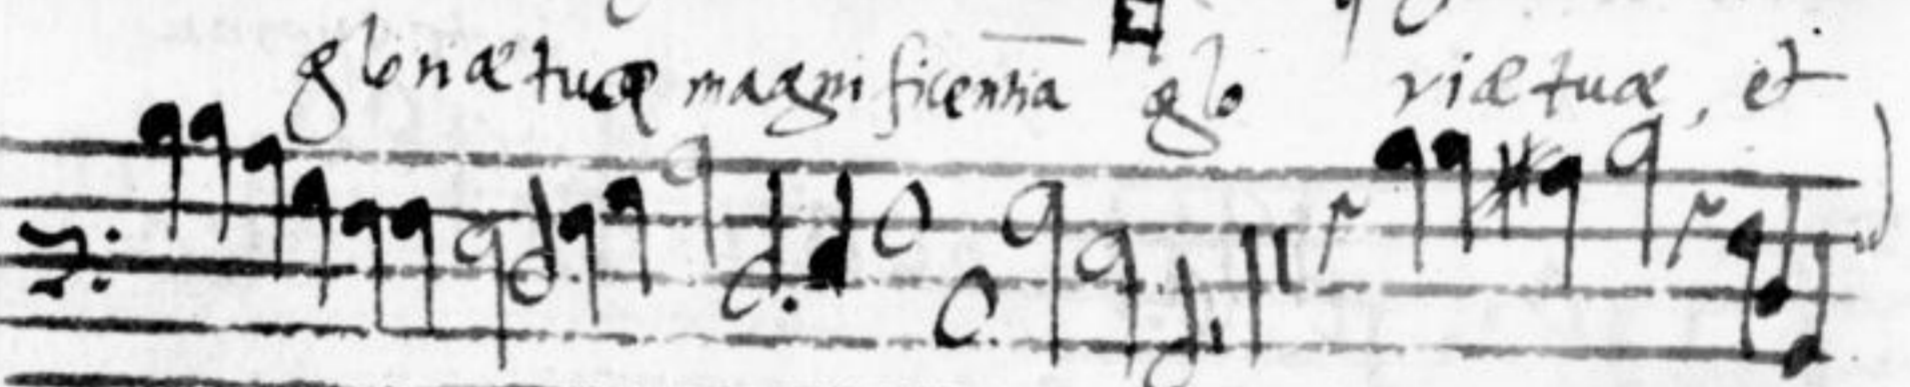 gloriæ tuæ magnificentia glo riæ tuæ, et